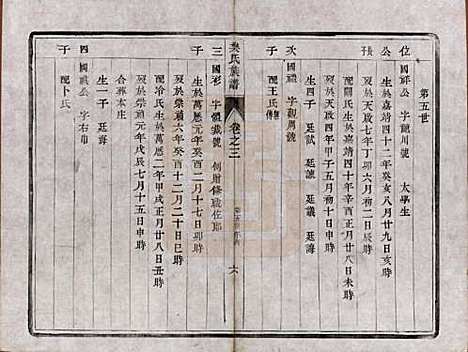 第五世
位 國祥公 字龍川號 太學生
公 生於嘉靖四十二年癸亥八月廿九日亥時
長 歿於天啟七年丁卯六月初二日辰時
配關氏生於嘉靖四十年辛酉正月廿八日卯時
歿於天啟四年甲子五月初十日申時
生四子 廷試 廷諫 廷議 廷誨
次 國禎 字觀周號
子 配王氏
吳氏族譜 卷之三 六
三 國彩 字 號 例 修職佐郎
子 生於萬曆元年癸酉二月十七日卯時
歿於崇禎六年癸酉十二月二十日巳時
配冷氏生於萬曆二年甲戌正月廿八日丑時
歿於崇禎元年戊辰七月十五日申時
合葬本庄
生一子 廷
四 國禮公 字右
子 配卜氏